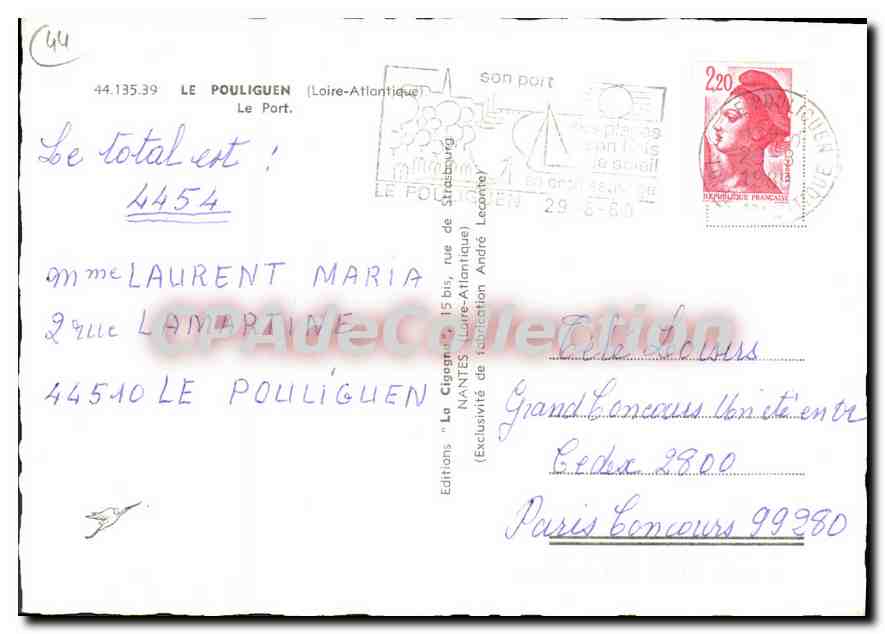 44
44.135.39 LE POULIGUEN (Loire-Atlantique)
Le Port.
Le total est :
4454
Mme LAURENT MARIA
2 rue LAMARTINE
44510 LE POULIGUEN
Editions "La Cigogne", 15 bis, rue de Strasbourg
NANTES (Loire-Atlantique)
(Exclusivité de fabrication André Leconte)
son port
ses plages
son bois
le soleil
LE POULIGUEN
2,20
REPUBLIQUE FRANÇAISE
Télé Loisirs
Grand Concours Un été en or
Cedex 2800
Paris Concours 99280
CPAdeCollection